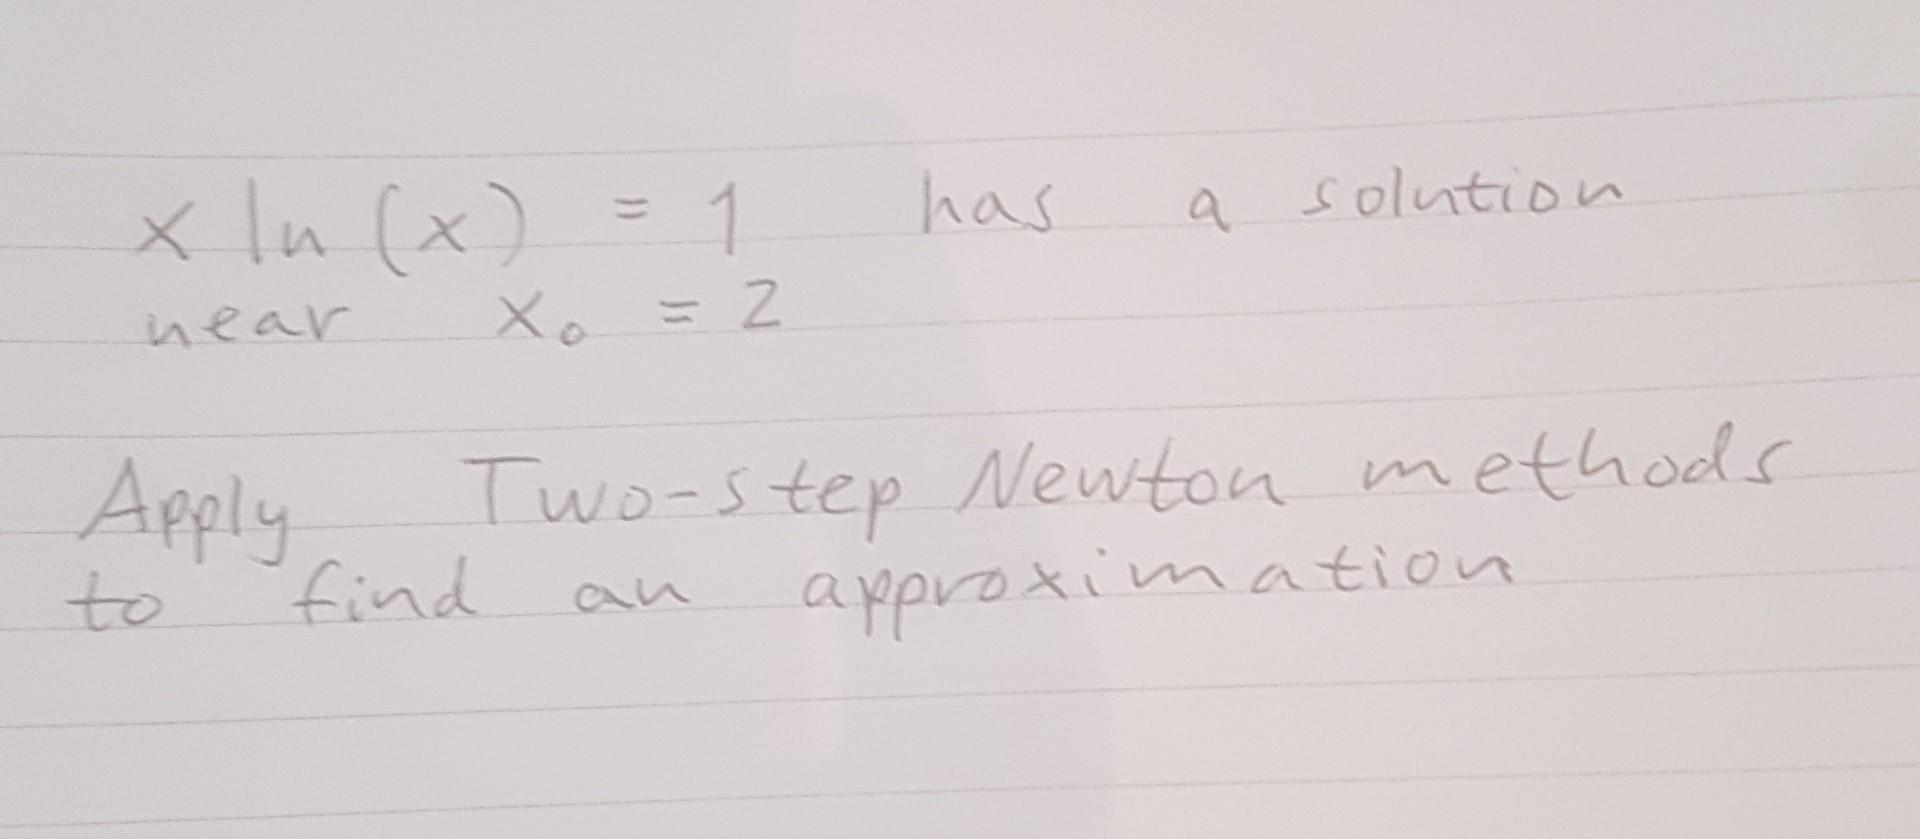 x ln (x) = 1 has a solution
near x₀ = 2
Apply Two-step Newton methods
to find an approximation